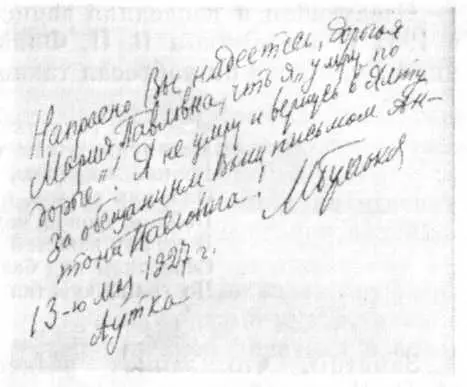 Напрасно Вы надеетесь, дорогая
Мария Павловна, что я „умру по
дороге“! Я не умру и вернусь в Ялту
за обещанным Вами письмом Ан-
тона Павловича!
МБулгаков
13-го мая 1927 г.
Аутка